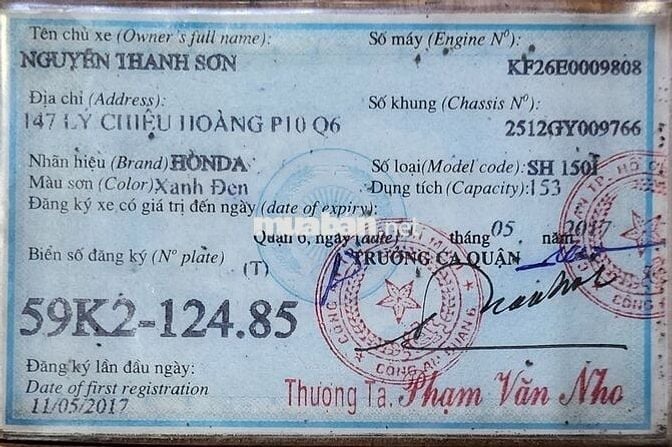 Tên chủ xe (Owner's full name):
NGUYỄN THANH SƠN
Số máy (Engine Nº):
KF26E0009808
Địa chỉ (Address):
147 LÝ CHIÊU HOÀNG P10 Q6
Số khung (Chassis Nº):
2512GY009766
Nhãn hiệu (Brand): HONDA
Số loại(Model code): SH 150I
Màu sơn (Color) Xanh Đen
Dung tích (Capacity): 153
Đăng ký xe có giá trị đến ngày (date of expiry):
muaban.net
Quận 6, ngày (date) tháng 05 năm 2017
Biển số đăng ký (Nº plate) (T)
TRƯỞNG CA QUẬN
59K2-124.85
CÔNG AN QUẬN 6
Đăng ký lần đầu ngày:
Date of first registration
11/05/2017
Thượng Tá. Phạm Văn Nho